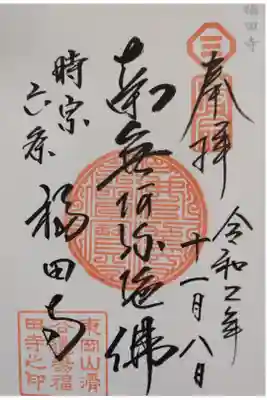 福田寺
奉拝
令和 年
十一月八日
南無阿弥陀佛
時宗
六条
福田寺
東岡山滑
谷 福
田寺之印